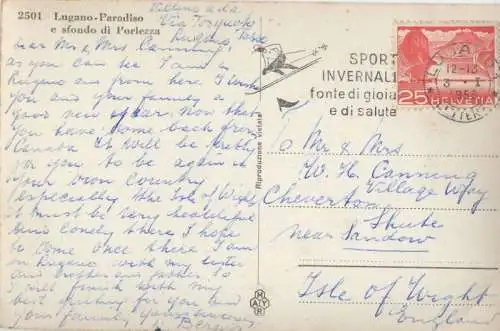 2501 Lugano-Paradiso
e sfondo di Porlezza
Via
Lugano
Dear Mr & Mrs Canning
as you can see I am in
Lugano and from here I wish
you and your family a
good new year. Now that
you have come back from
Canada it will be pretty
for you to be again in
your own country
especially the Isle of Wight
it must be very beautiful
and lovely there I hope
to come once there I am
in Lugano with my sister
and brother and father so
I will finish with my
best wishes for you and
your family yours sincerely
SPORT
INVERNALI
fonte di gioia
e di salute
LUGANO
12-13
3 I
LETTERE
25 HELVETIA
Riproduzione vietata
To Mr & Mrs
W. H. Canning
Village Way
Cheverton
Shute
near Sandow
Isle of Wight
England